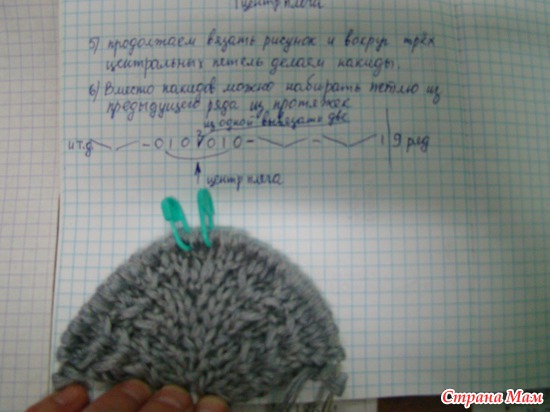 центр плеча
5) продолжаем вязать рисунок и вокруг трёх
центральных петель делаем накиды.
6) Вместо накидов можно набирать петлю из
предыдущего ряда из протяжек
из одной вывязать две
и т.д. - 0 1 0 0 1 0 - - 1 9 ряд
центр плеча
Страна Мам